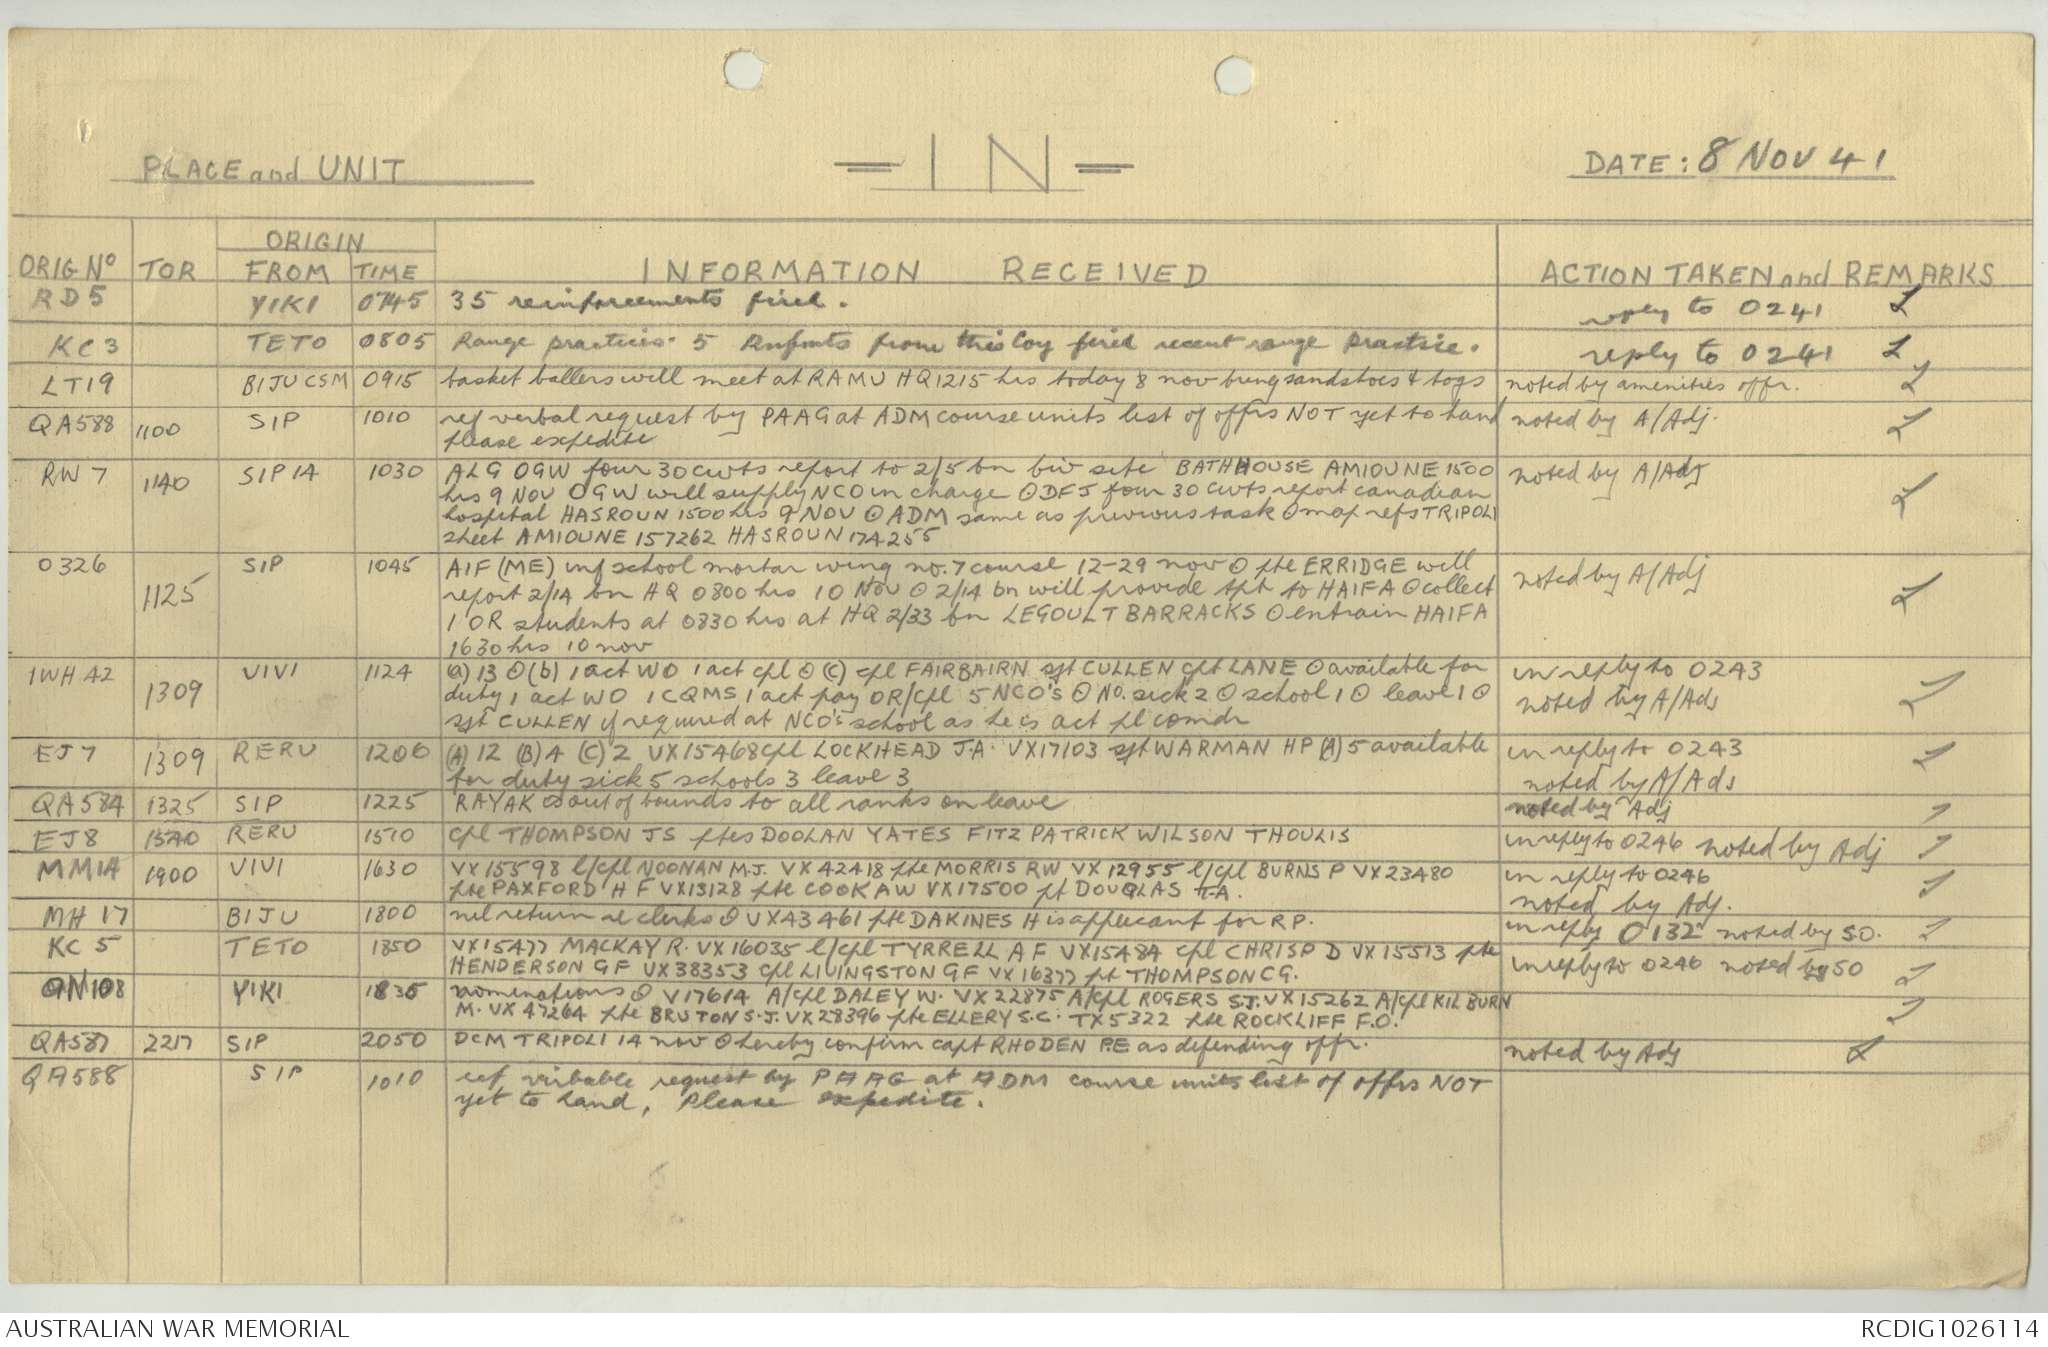 PLACE and UNIT
= I N =
DATE: 8 NOV 41
ORIGIN
ORIG Nº TOR FROM TIME INFORMATION RECEIVED ACTION TAKEN and REMARKS
RD5 YIKI 0745 35 reinforcements fired. reply to 0241
KC3 TETO 0805 Range practices. 5 Rnfmts from this Coy fired recent range practice. reply to 0241
LT19 BIJU CSM 0915 basket ballers will meet at RAMU HQ 1215 hrs today 8 nov bring sandshoes & togs noted by amenities offr.
QA588 1100 SIP 1010 ref verbal request by PAAG at ADM course units list of offrs NOT yet to hand noted by A/Adj.
please expedite
RW 7 1140 SIP 14 1030 ALG OGW four 30 cwts report to 2/5 bn biv site BATHHOUSE AMIOUNE 1500 noted by A/Adj
hrs 9 NOV OGW will supply NCO in charge ⊙ DFJ four 30 cwts report canadian
hospital HASROUN 1500 hrs 9 NOV ⊙ ADM same as previous task ⊙ map refs TRIPOLI
sheet AMIOUNE 157262 HASROUN 174255
0326 1125 SIP 1045 AIF (ME) inf school mortar wing no. 7 course 12-29 nov ⊙ pte ERRIDGE will noted by A/Adj
report 2/14 bn HQ 0800 hrs 10 Nov ⊙ 2/14 bn will provide tpt to HAIFA ⊙ collect
1 OR students at 0830 hrs at HQ 2/33 bn LEGOULT BARRACKS ⊙ entrain HAIFA
1630 hrs 10 nov
1WH 42 1309 VIVI 1124 (a) 13 ⊙ (b) 1 act WO 1 act cpl ⊙ (c) cpl FAIRBAIRN sjt CULLEN cpl LANE ⊙ available for in reply to 0243
duty 1 act WO 1 CQMS 1 act pay OR/Cpl 5 NCO's ⊙ No. sick 2 ⊙ school 1 ⊙ leave 1 ⊙ noted by A/Adj
sjt CULLEN if required at NCO's school as he is act pl comdr
EJ 7 1309 RERU 1200 (A) 12 (B) 4 (C) 2 VX15468 Cpl LOCKHEAD J.A. VX17103 sjt WARMAN HP (A) 5 available in reply to 0243
for duty sick 5 schools 3 leave 3 noted by A/Adj
QA584 1325 SIP 1225 RAYAK is out of bounds to all ranks on leave noted by Adj
EJ8 1540 RERU 1510 Cpl THOMPSON JS ptes DOOLAN YATES FITZPATRICK WILSON THOULIS in reply to 0246 noted by Adj
MM14 1900 VIVI 1630 VX15598 l/cpl NOONAN M.J. VX42418 pte MORRIS RW VX12955 l/cpl BURNS P VX23480 in reply to 0246
pte PAXFORD H F VX13128 pte COOK AW VX17500 pt DOUGLAS T.A. noted by Adj.
MH 17 BIJU 1800 nil return re clerks ⊙ VX43461 pte DAKINES H is applicant for RP. in reply 0132 noted by SO.
KC 5 TETO 1850 VX15477 MACKAY R. VX16035 l/cpl TYRRELL A F VX15484 cpl CHRISP D VX15513 pte in reply to 0246 noted by SO
HENDERSON GF VX38353 cpl LIVINGSTON GF VX16377 pt THOMPSON CG.
QN108 YIKI 1835 nominations ⊙ V17614 A/cpl DALEY W. VX22875 A/cpl ROGERS S.J. VX15262 A/cpl KILBURN
M. VX47264 pte BRUTON S.J. VX28396 pte ELLERY S.C. TX5322 pte ROCKLIFF F.O.
QA587 2217 SIP 2050 DCM TRIPOLI 14 nov ⊙ hereby confirm capt RHODEN P.E as defending offr. noted by Adj
QA588 SIP 1010 ref virbable request by PAAG at ADM course units list of offrs NOT
yet to hand, Please expedite.
AUSTRALIAN WAR MEMORIAL RCDIG1026114